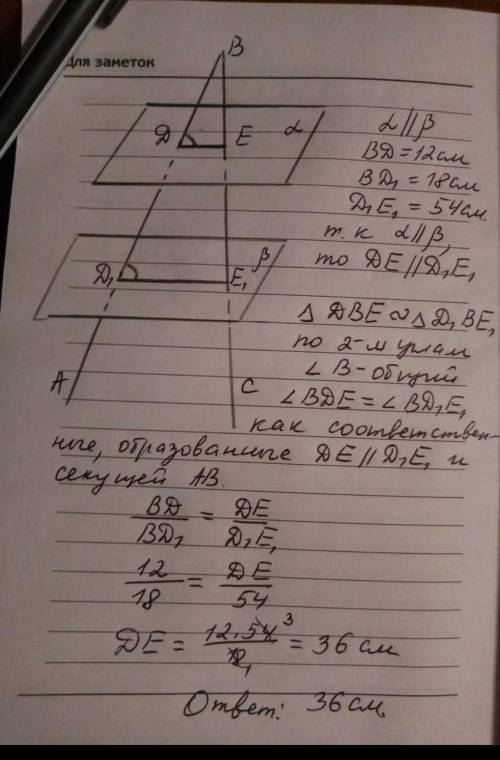 Для заметок
B
D E α
D₁ E₁ β
A C
α∥β
BD = 12 см
BD₁ = 18 см
D₁E₁ = 54 см.
т. к α∥β,
то DE∥D₁E₁
Δ DBE ∾ Δ D₁BE₁
по 2-м углам
∠ B - общий
∠ BDE = ∠ BD₁E₁
как соответствен-
ные, образованные DE∥D₁E₁ и
секущей AB.
BD/BD₁ = DE/D₁E₁
12/18 = DE/54
DE = 12·54³/18₁ = 36 см
Ответ: 36 см.